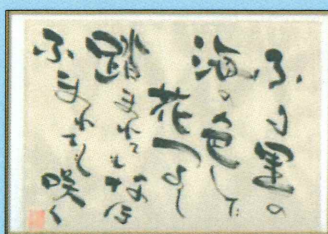 ふる里の
海の色して
花つよし
踏まれてもなほ
ふまれても咲く